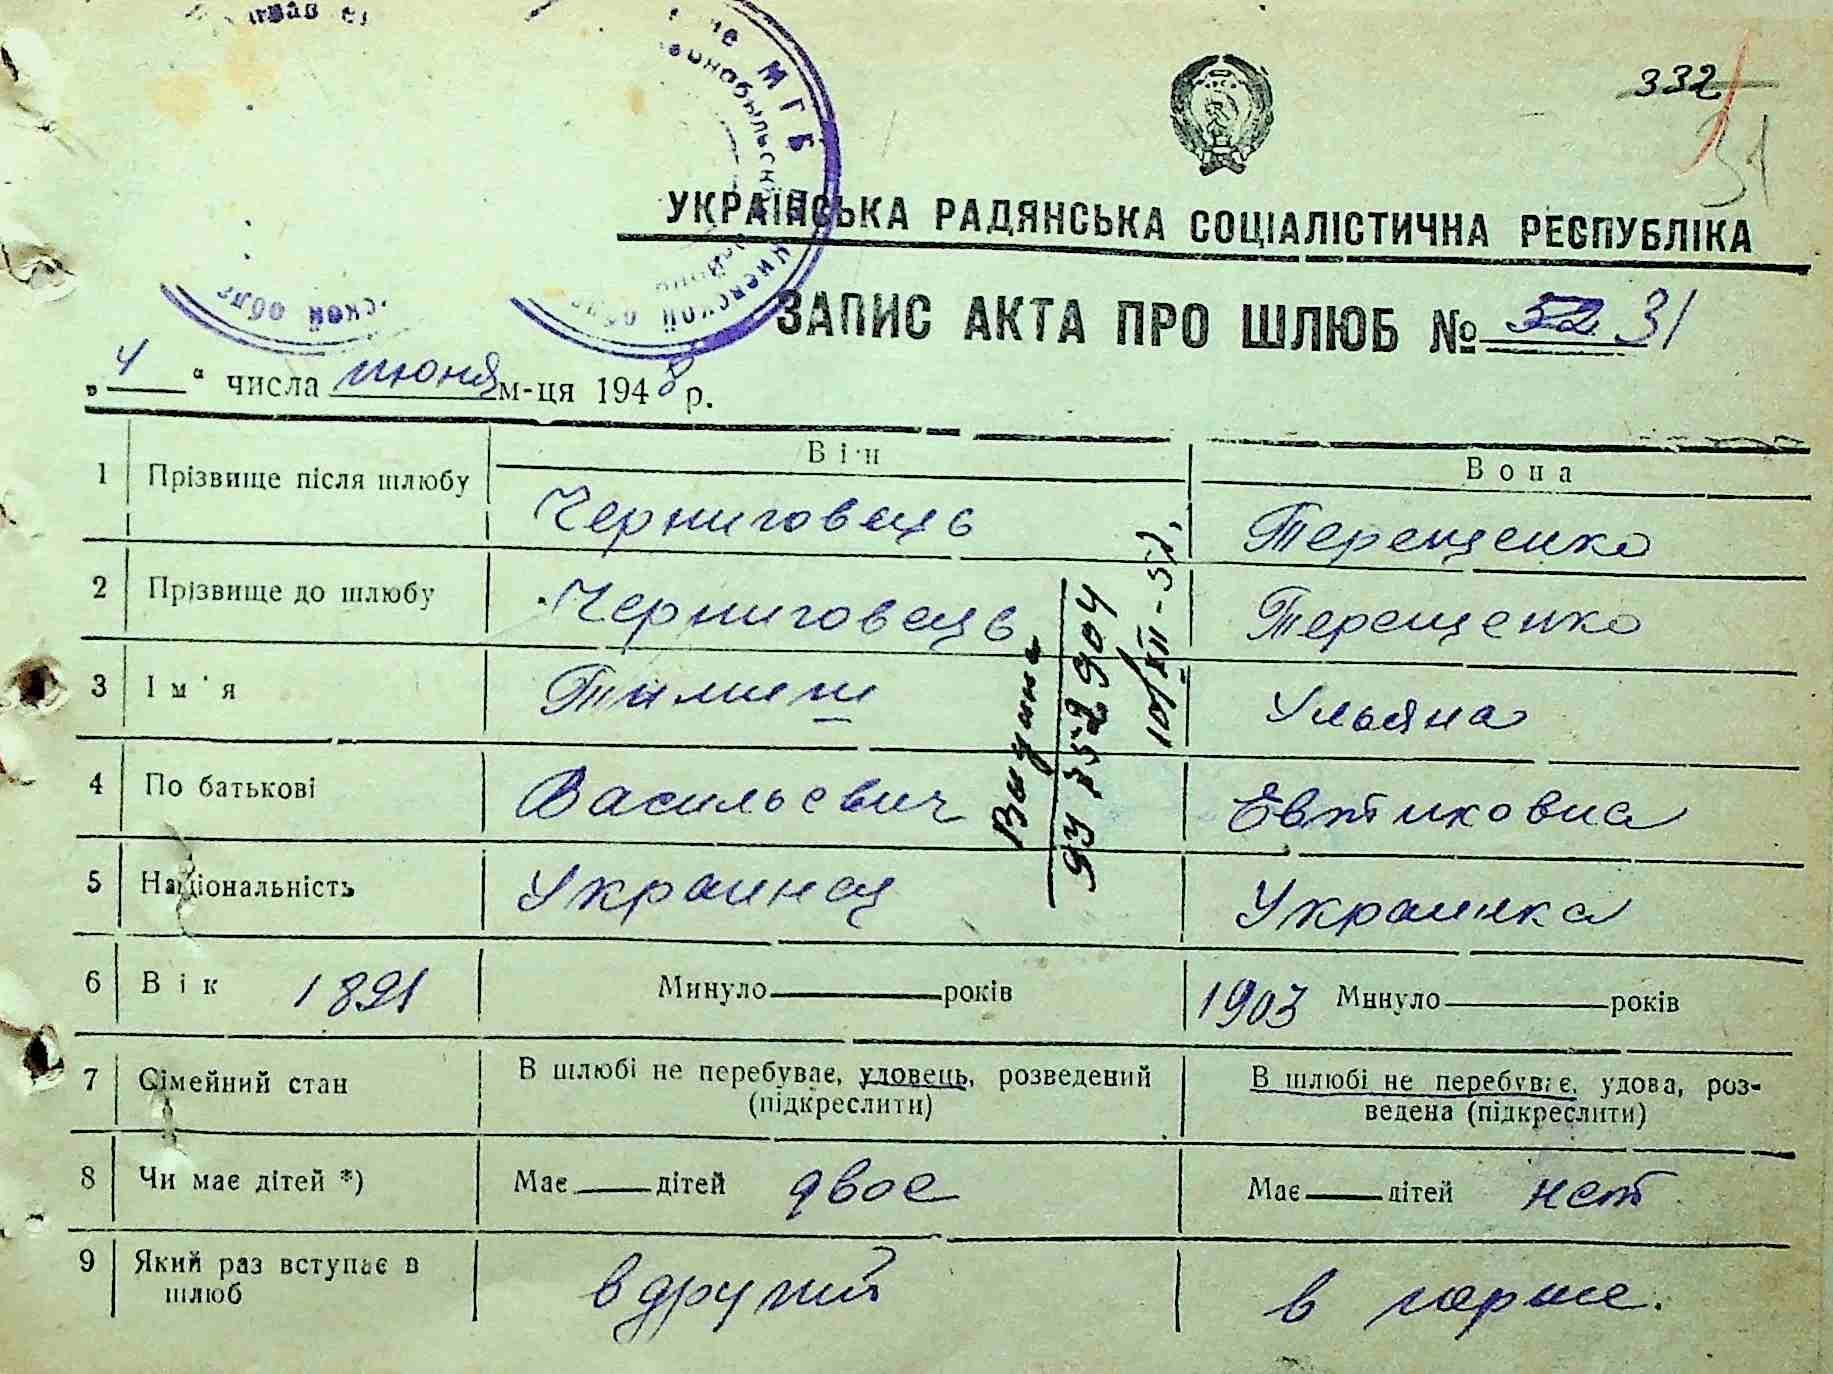 332
31
УКРАЇНСЬКА РАДЯНСЬКА СОЦІАЛІСТИЧНА РЕСПУБЛІКА
ЗАПИС АКТА ПРО ШЛЮБ № 52 31
„4“ числа июня м-ця 1948 р.
Він
Вона
1 Прізвище після шлюбу Черниговець Терещенко
2 Прізвище до шлюбу Черниговець Терещенко
3 Ім'я Тимиш Ульяна
4 По батькові Васильевич Евтиховна
5 Національність Украинец Украинка
6 Вік 1891 Минуло ——— років 1903 Минуло ——— років
7 Сімейний стан В шлюбі не перебуває, удовець, розведений (підкреслити) В шлюбі не перебуває, удова, роз-
ведена (підкреслити)
8 Чи має дітей *) Має —— дітей двое Має —— дітей нет
9 Який раз вступає в
шлюб
в другий
в перше.
10/XII-52,
МГБ
Киевской обл
ской обл